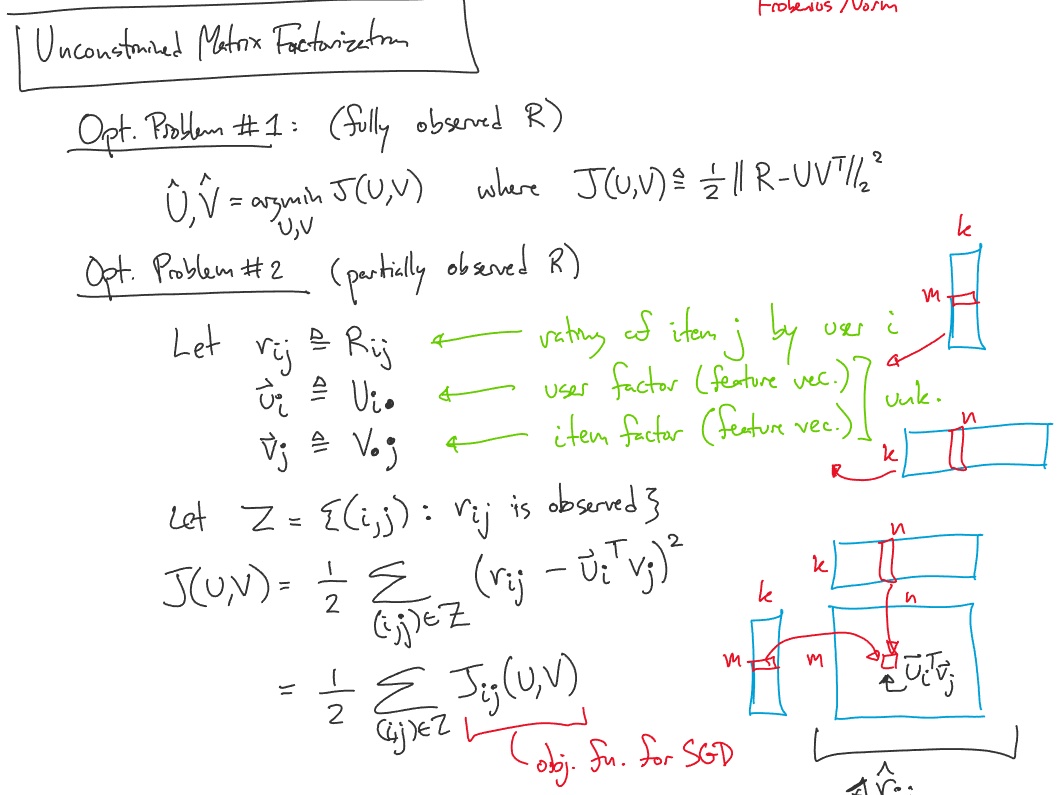 Frobenius Norm
Unconstrained Matrix Factorization
Opt. Problem #1: (fully observed R)
Û, V̂ = argmin_{U,V} J(U,V) where J(U,V) ≜ 1/2 || R - UV^T ||_2^2
Opt. Problem #2 (partially observed R)
k
m
Let r_ij ≜ R_ij ← rating of item j by user i
u⃗_i ≜ U_i• ← user factor (feature vec.)
unk.
v⃗_j ≜ V_•j ← item factor (feature vec.)
n
k
Let Z = {(i,j) : r_ij is observed}
n
k
J(U,V) = 1/2 Σ_{(i,j)∈Z} (r_ij - u⃗_i^T v_j)^2
k
n
m
m
u⃗_i^T v⃗_j
= 1/2 Σ_{(i,j)∈Z} J_ij(U,V)
obj. fn. for SGD